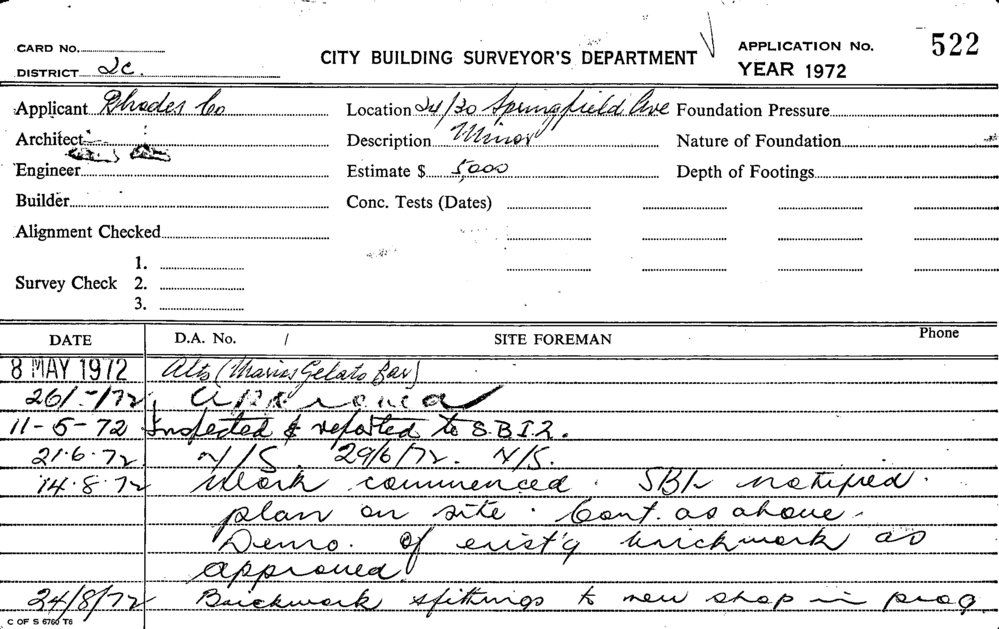 CARD No.
DISTRICT 2c.
CITY BUILDING SURVEYOR'S DEPARTMENT
APPLICATION No. 522
YEAR 1972
Applicant Rhodes Co
Location 24/30 Springfield Ave
Foundation Pressure
Architect
Description Minor
Nature of Foundation
Engineer
Estimate $ 5,000
Depth of Footings
Builder
Conc. Tests (Dates)
Alignment Checked
Survey Check
1.
2.
3.
DATE
D.A. No. /
SITE FOREMAN
Phone
8 MAY 1972 Alts (Marios Gelato Bar)
26/-/72 approved
11-5-72 Inspected & reported to S.B.I.2.
21.6.72 N/S. 29/6/72. N/S.
14.8.72 Work commenced. SBI notified.
plan on site. Cont. as above.
Demo. of exist'g brickwork as
approved
24/8/72 Brickwork & fittings to new shop in prog
C OF S 6760 T6